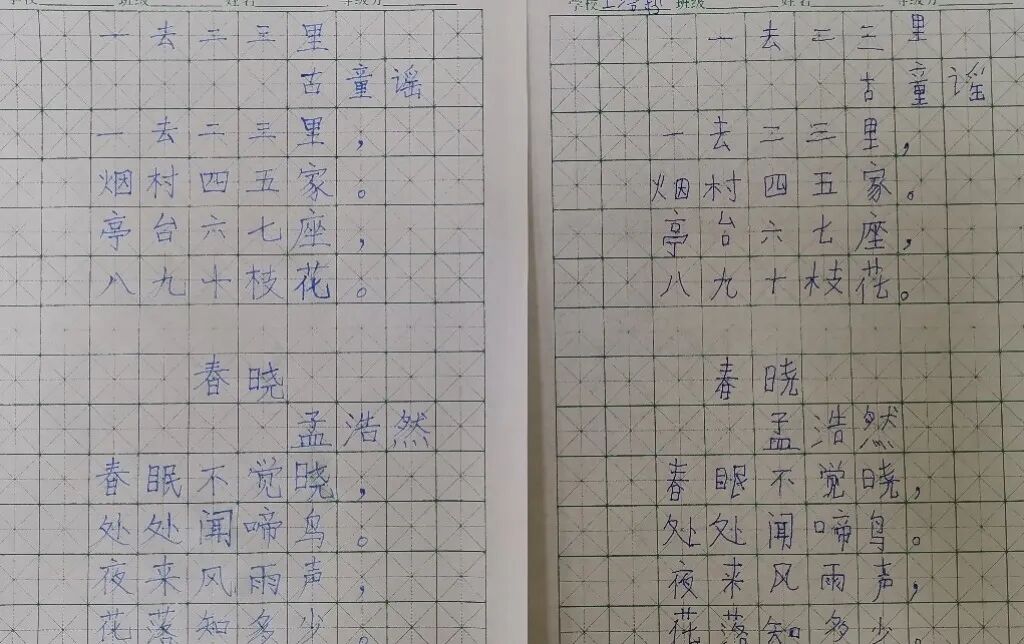 学校 班级 姓名
一去二三里
古童谣
一去二三里，
烟村四五家。
亭台六七座，
八九十枝花。
春晓
孟浩然
春眠不觉晓，
处处闻啼鸟。
夜来风雨声，
花落知多少。
学校 班级 姓名
一去二三里
古童谣
一去二三里，
烟村四五家。
亭台六七座，
八九十枝花。
春晓
孟浩然
春眠不觉晓，
处处闻啼鸟。
夜来风雨声，
花落知多少。